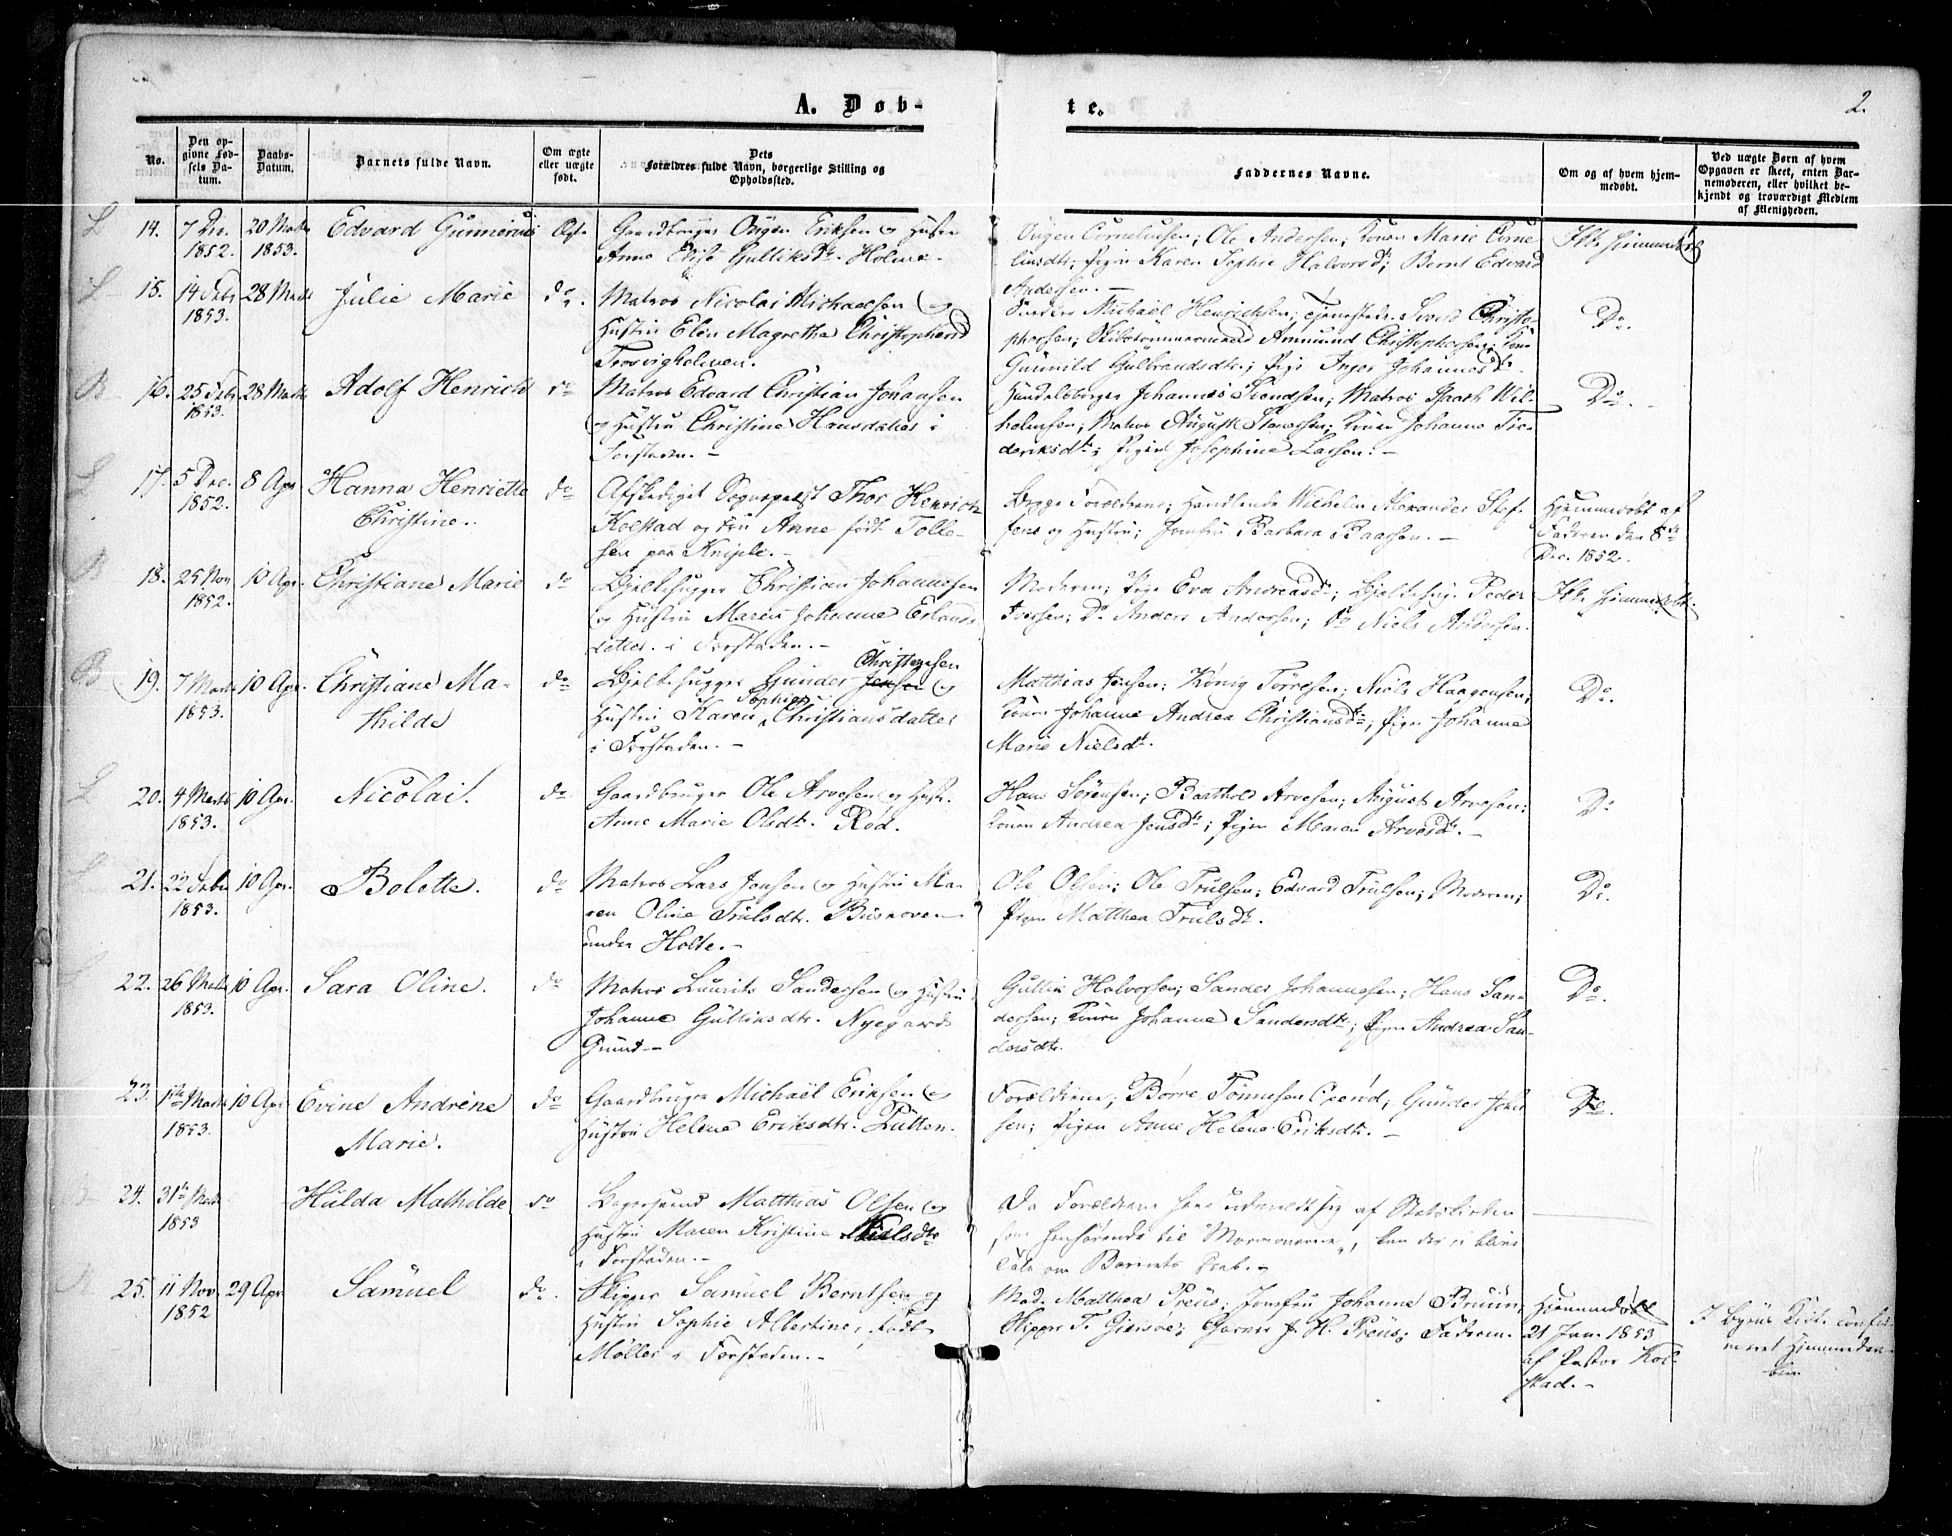 A. Døb-
te.
2.
No.
Den op-
givne Fød-
sels Da-
tum.
Daabs-
Datum.
Barnets fulde Navn.
Om ægte
eller uægte
født.
Dets
Forældres fulde Navn, borgerlige Stilling og
Opholdssted.
Faddernes Navne.
Om og af hvem hjem-
medøbt.
Ved uægte Børn af hvem
Opgaven er skeet, enten Bar-
nemoderen, eller hvilket be-
kjendt og troværdigt Medlem
af Menigheden.
14. 7 Dec. 1852. 20 Marts 1853. Edvard Gunnerius Ægte
Gaardbruger Eriksen og Hustru
Anne Elise Gulliksdr. Holme.
Cornelius; Ole Andersen; Konen Marie Corne
liusdtr; Pigen Karen Sophie Halvorsdr; Bernt Edvard
Andersen. —
Ikke hjemmedøbt
15. 14 Febr 1853. 28 Marts Julie Marie do.
Matros Nicolai Michaelsen og
Hustru Elen Magretha Christophersd
Trosvigholmen.
Michaël Henrichsen; Christo-
phersen; Skibstømmermand Amund Christophersen; Kone
Gunnild Gulbrandsdtr.; Pige Inger Johannesdr.
Do.
16. 25 Febr 1853. 28 Marts Adolf Henrich do
Matros Edvard Christian Johansen
og Hustru Christine Hansdatter i
Forstaden. —
Handelsborger Johannes Svendsen; Matros Isach Wil-
helmsen; Matros August; Konen Johanne Fre-
deriksdtr; Pigen Josephine Larsen. —
Do.
17. 5 Dec. 1852. 8 Apr. Hanna Henriette do
Christine.
Afskediget Sognepræst Thor Henrich
Kolstad og Fru Anne født Tolle-
sen paa Kniple. —
Begge Forældrene; Handlende Wilhelm Alexander Stef-
fens og Hustru; Jomfru Barbara Baassen. —
Hjemmedøbt af
Faderen den 8de
Dec. 1852.
18. 25 Nov 1852. 10 Apr. Christiane Marie do
Bjelkehugger Christian Johannesen
og Hustru Maren Johanne Erlands-
datter i Forstaden. —
Moderen; Pige Eva Andreasdr; Bjelkehug. Peder
Iversen; Do Anders Andersen; Do Niels Andersen.
Ikke hjemmedøbt.
19. 7 Marts 1853. 10 Apr. Christiane Ma-
thilde do
Christensen
Bjelkehugger Gunder Jensen og
Sophie
Hustru Karen Christiansdatter
i Forstaden. —
Matthias Jensen; König Torresen; Niels Haagensen;
Konen Johanne Andrea Christiansdr; Pigen Johanne
Marie Nielsdr.
Do.
20. 4 Marts 1853. 10 Apr. Nicolai. do
Gaardbruger Ole Arvesen og Hustr.
Anne Marie Olsdtr. Rød.
Hans Sørensen; Barthold Arvesen; August Arvesen;
Konen Andrea Jensdtr; Pigen Maren Arvesdtr. —
Do
21. 22 Febr 1853. 10 Apr. Bolette. do
Matros Lars Jensen og Hustru Ma-
ren Oline Trulsdtr.
under Holte. —
Ole Olsen; Ole Trulsen; Edvard Trulsen; Moderen;
Pigen Matthea Trulsdtr.
Do.
22. 26 Marts 1853. 10 Apr. Sara Oline. do
Matros Laurits Sandersen og Hustru
Johanne Gulliksdtr. Nyegaards
Grund —
Gullik Halvorsen; Sander Johannesen; Hans San-
dersen; Konen Johanne Sandersdtr; Pigen Andrea San-
dersdtr.
Do.
23. 1ste Marts 1853. 10 Apr. Evine Andréne
Marie. do
Gaardbruger Michaël Eriksen og
Hustru Helene Eriksdtr. Putten.
Forældrene; Børre Tønnesen; Gunder John
sen; Pigen Anne Helene Eriksdtr. —
Do.
24. 31te Marts 1853 Hulda Mathilde do
Bagersvend Matthias Olsen og
Hustru Maren Kristine Nielsdtr
i Forstaden. —
Da Forældrene have udmeldt sig af Statskirken
som henhørende til Mormonerne, kan der ei blive
Tale om Barnets Daab. —
25. 11 Nov. 1852 29 Apr. Samuel do.
Skipper Samuel Berntsen og
Hustru Sophie Albertine, født
Møller i Forstaden. —
Mad. Matthea Preus; Jomfru Johanne Bruun;
Skipper T. Gjersøe; Garver J. H. Preus; Faderen.
Hjemmedøbt
21 Jan. 1853
af Pastor Kol-
stad. —
I Byens Kirke confir-
meret Hjemmedaa-
ben